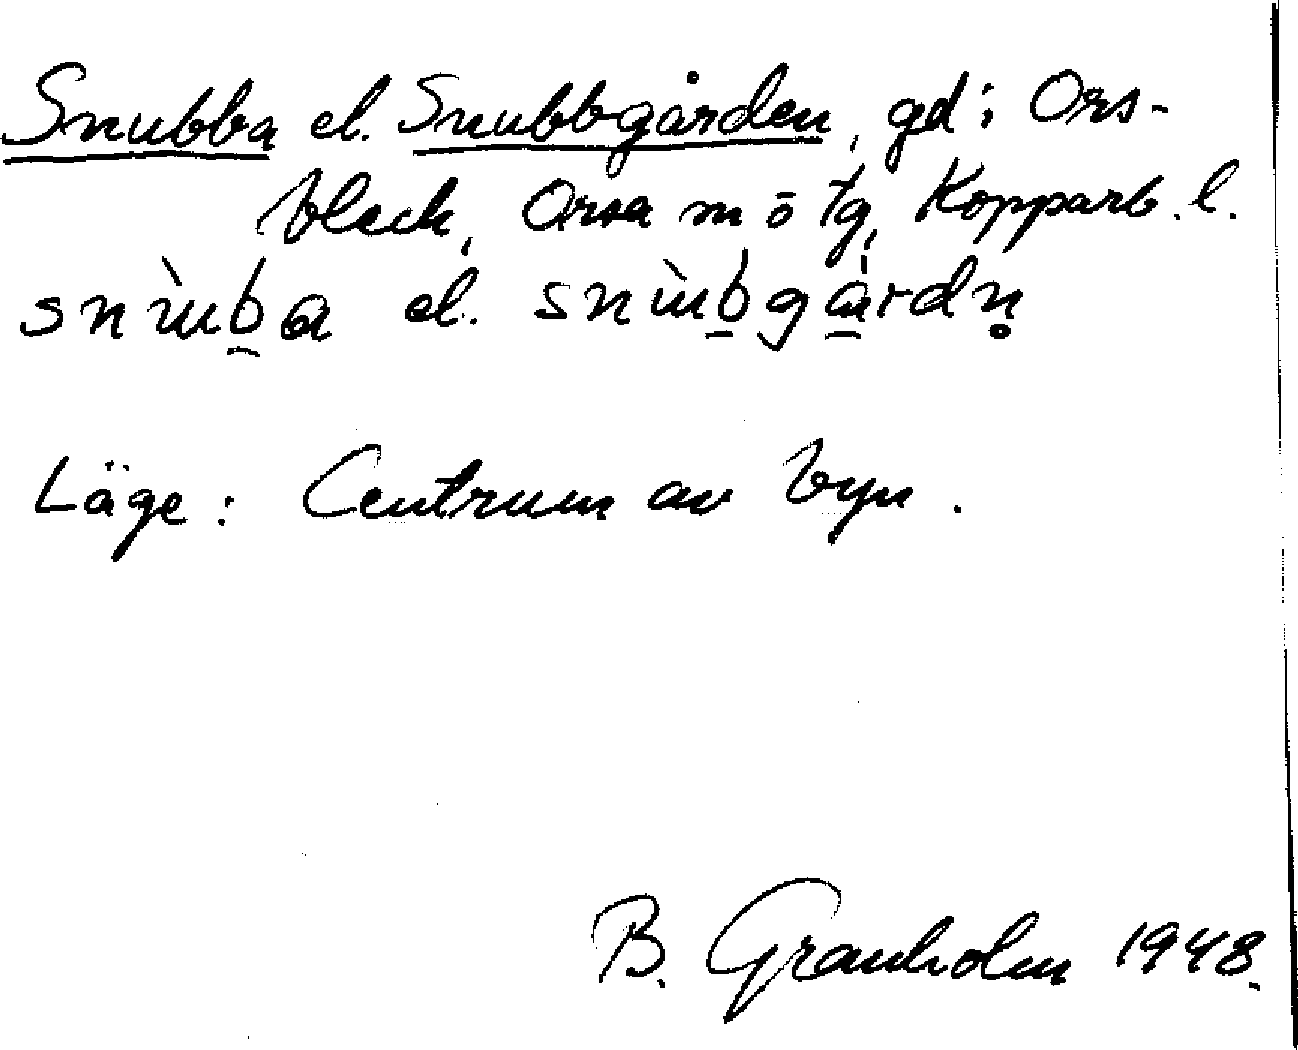 Snubba el. Snubbgården, gd i Ors-
bleck, Orsa sn o tg, Kopparb. l.
snɯ̀b̠a el. snɯ̀b̠gå̠rdn̥
Läge: Centrum av byn.
B. Granholm 1948.